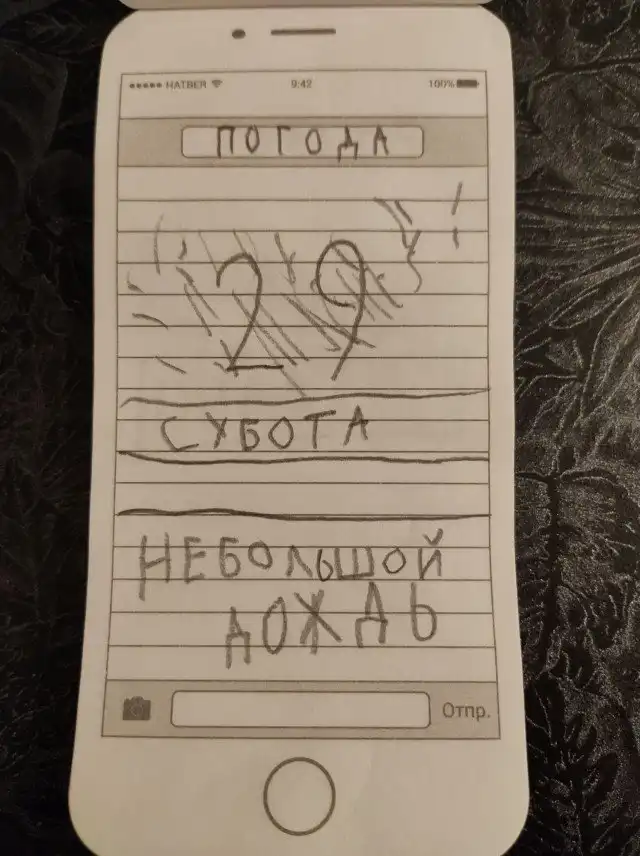 HATBER 9:42 100%
ПОГОДА
29
СУБОТА
НЕБОЛЬШОЙ
ДОЖДЬ
Отпр.